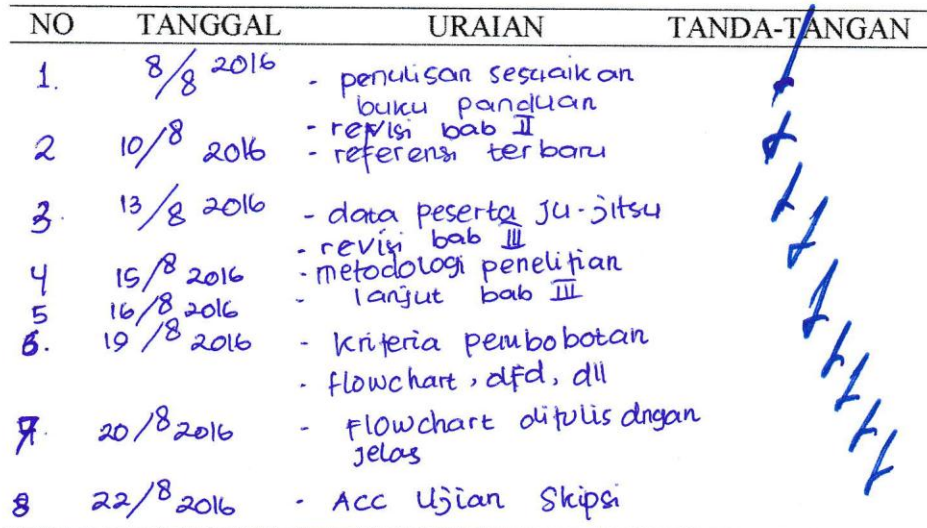 NO TANGGAL URAIAN TANDA-TANGAN
1. 8/8 2016 - penulisan sesuaikan
buku panduan
- revisi bab II
2 10/8 2016 - referensi terbaru
3. 13/8 2016 - data peserta ju-jitsu
- revisi bab III
4 15/8 2016 - metodologi penelitian
5 16/8 2016 - lanjut bab III
6. 19/8 2016 - kriteria pembobotan
- flowchart, dfd, dll
7. 20/8 2016 - Flowchart ditulis dngan
jelas
8 22/8 2016 - Acc Ujian Skipsi